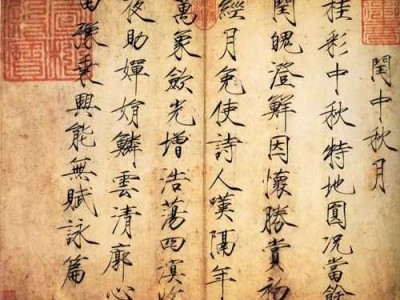 閏中秋月
桂彩中秋特地圓況當餘
閏魄澄鮮因懷勝賞初
經月免使詩人嘆隔年
萬象斂光增浩蕩四溟
夜助嬋娟鱗雲清廓心
田豫乘興能無賦詠篇